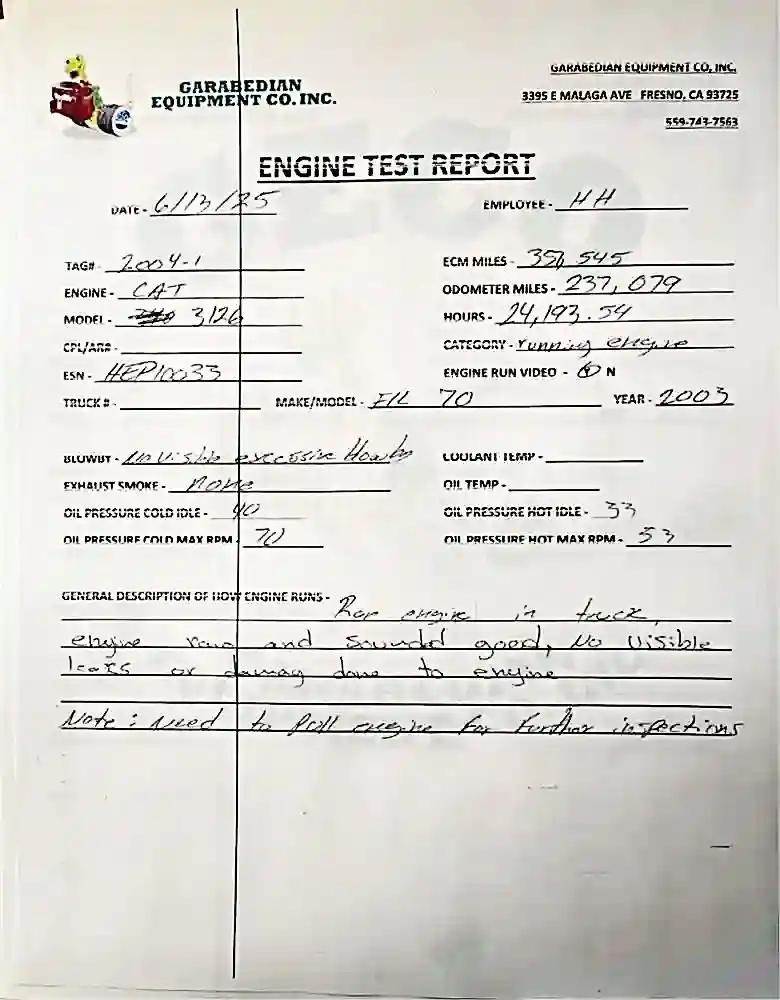 GARABEDIAN
EQUIPMENT CO. INC.
GARABEDIAN EQUIPMENT CO, INC.
3395 E MALAGA AVE FRESNO, CA 93725
559-743-7563
ENGINE TEST REPORT
DATE - 6/13/25
EMPLOYEE - HH
TAG# - 2004-1
ECM MILES - 351,545
ENGINE - CAT
ODOMETER MILES - 237,079
MODEL - 3126
HOURS - 24,193.54
CPL/AR# -
CATEGORY - running engine
ESN - HEP10033
ENGINE RUN VIDEO - Y N
TRUCK # -
MAKE/MODEL - F/L 70
YEAR - 2003
BLOWBY - No visible excessive
COOLANT TEMP -
EXHAUST SMOKE - none
OIL TEMP -
OIL PRESSURE COLD IDLE - 40
OIL PRESSURE HOT IDLE - 33
OIL PRESSURE COLD MAX RPM - 70
OIL PRESSURE HOT MAX RPM - 53
GENERAL DESCRIPTION OF HOW ENGINE RUNS -
Ran engine in truck,
engine ran and sounded good, No visible
leaks or damag done to engine
Note: Need to Pull engine for further inspections